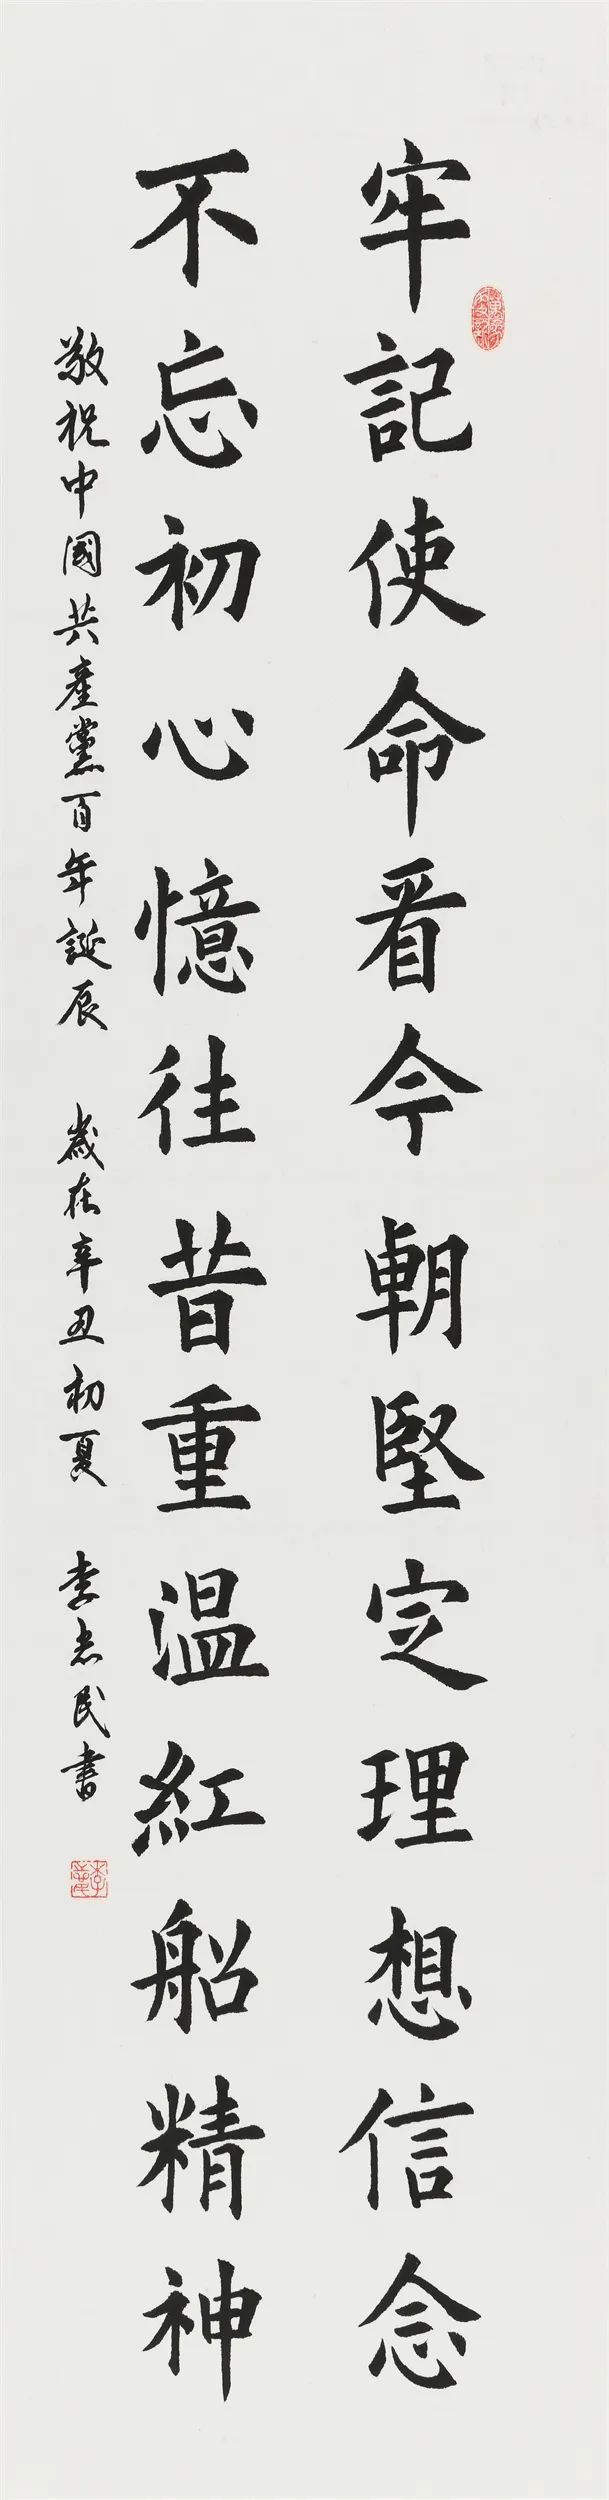 牢記使命看今朝堅定理想信念
不忘初心憶往昔重温紅船精神
敬祝中國共產黨百年誕辰 歲在辛丑初夏 李志民書